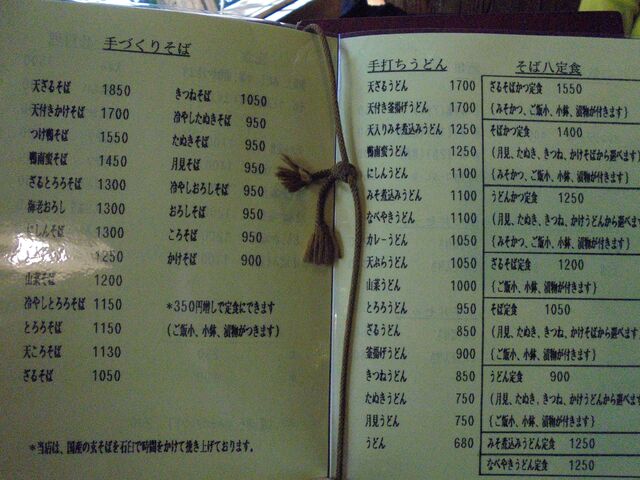 手づくりそば
天ざるそば 1850
天付きかけそば 1700
つけ鴨そば 1550
鴨南蛮そば 1450
ざるとろろそば 1300
海老おろし 1300
にしんそば 1300
1250
山菜そば 1200
冷やしとろろそば 1150
とろろそば 1150
天ころそば 1130
ざるそば 1050
きつねそば 1050
冷やしたぬきそば 950
たぬきそば 950
月見そば 950
冷やしおろしそば 950
おろしそば 950
ころそば 950
かけそば 900
*350円増しで定食にできます
(ご飯小、小鉢、漬物がつきます)
*当店は、国産の玄そばを石臼で時間をかけて挽き上げております。
手打ちうどん
天ざるうどん 1700
天付き釜揚げうどん 1700
天入りみそ煮込みうどん 1250
鴨南蛮うどん 1250
にしんうどん 1100
みそ煮込みうどん 1100
なべやきうどん 1100
カレーうどん 1050
天ぷらうどん 1050
山菜うどん 1050
とろろうどん 950
ざるうどん 850
釜揚げうどん 900
きつねうどん 850
たぬきうどん 750
月見うどん 750
うどん 680
そば八定食
ざるそばかつ定食 1550
(みそかつ、ご飯小、小鉢、漬物が付きます)
そばかつ定食 1400
(月見、たぬき、きつね、かけそばから選べます)
(みそかつ、ご飯小、小鉢、漬物が付きます)
うどんかつ定食 1250
(月見、たぬき、きつね、かけうどんから選べます)
(みそかつ、ご飯小、小鉢、漬物が付きます)
ざるそば定食 1200
(ご飯小、小鉢、漬物が付きます)
そば定食 1050
(月見、たぬき、きつね、かけそばから選べます)
(ご飯小、小鉢、漬物が付きます)
うどん定食 900
(月見、たぬき、きつね、かけうどんから選べます)
(ご飯小、小鉢、漬物が付きます)
みそ煮込みうどん定食 1250
なべやきうどん定食 1250